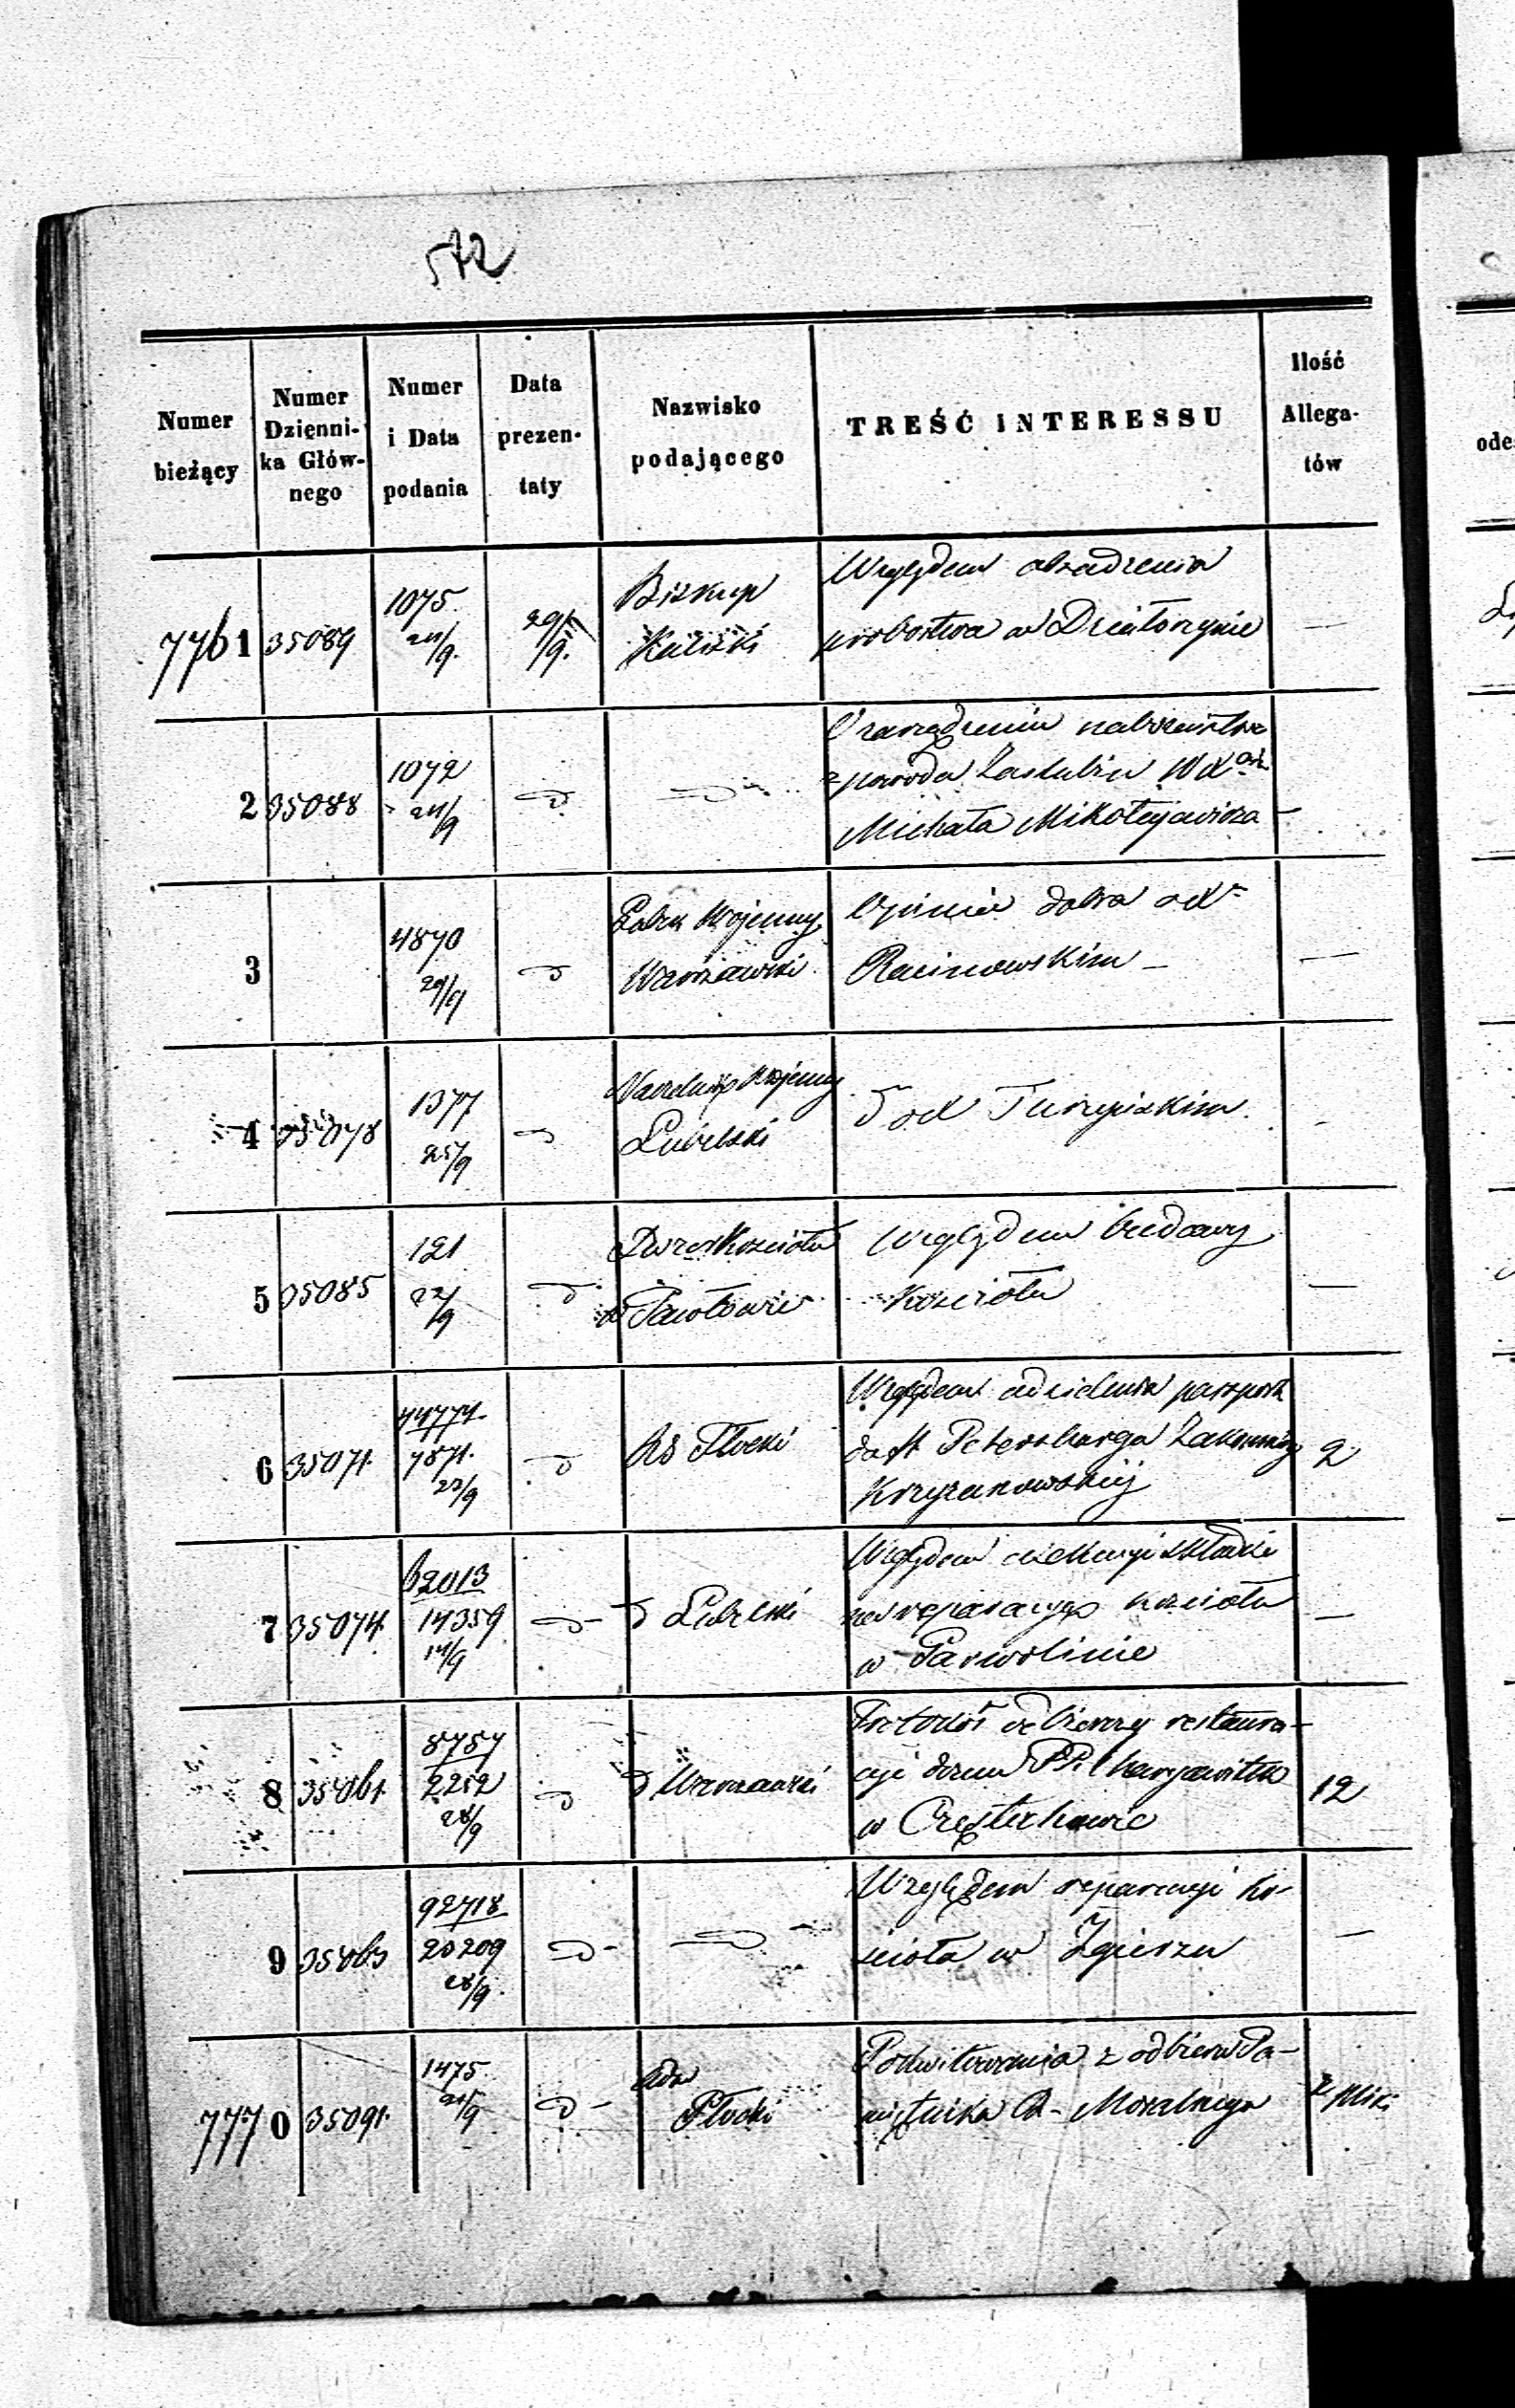 572
Numer bieżący
Numer Dzienni-ka Głów-nego
Numer i Data podania
Data prezen-taty
Nazwisko podającego
TREŚĆ INTERESSU
Ilość Allega-tów
7761 35089 1075 24/9 29/9 Biskup Kaliski
Względem obsadzenia
probostwa w —
2 35088 1072 24/9 d d
O zarządzeniu nabożeństwa
z powodu Zaślubin
Michała Mikołajewicza —
3 4870 d Wojenny Warszawski
Opinia
Racinowskim —
4 35078 1377 25/9 d Naczelnik Wojenny Lubelski
d od
5 35085 121 22/9 d Kościoła w Pawłowie
Względem budowy
Kościoła —
6 35071 44774 7871 22/9 d Płocki
Względem udzielenia paszportu
do St Petersburga
Krzyżanowskiéj 2
7 35074 62013 14359 14/9 d d Lubelski
Względem składki
na reparacyę kościoła
w Parwolinie —
8 35061 8757 2252 28/9 d d Warszawski
Protokół odbiorczy restaura-
cyi domu PP. Maryawitek
w Częstochowie 12
9 35063 92718 20209 28/9 d d
Względem reparacyi ko-
ścioła w Zgierzu —
7770 35091 1475 25/9 d Adm Płocki
Pokwitowania z odbioru Pa-
miętnika R. Moralnego 2 pliki